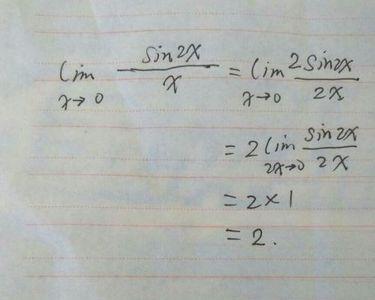 lim x→0 sin2x/x = lim x→0 2sin2x/2x
= 2 lim 2x→0 sin2x/2x
= 2×1
= 2.